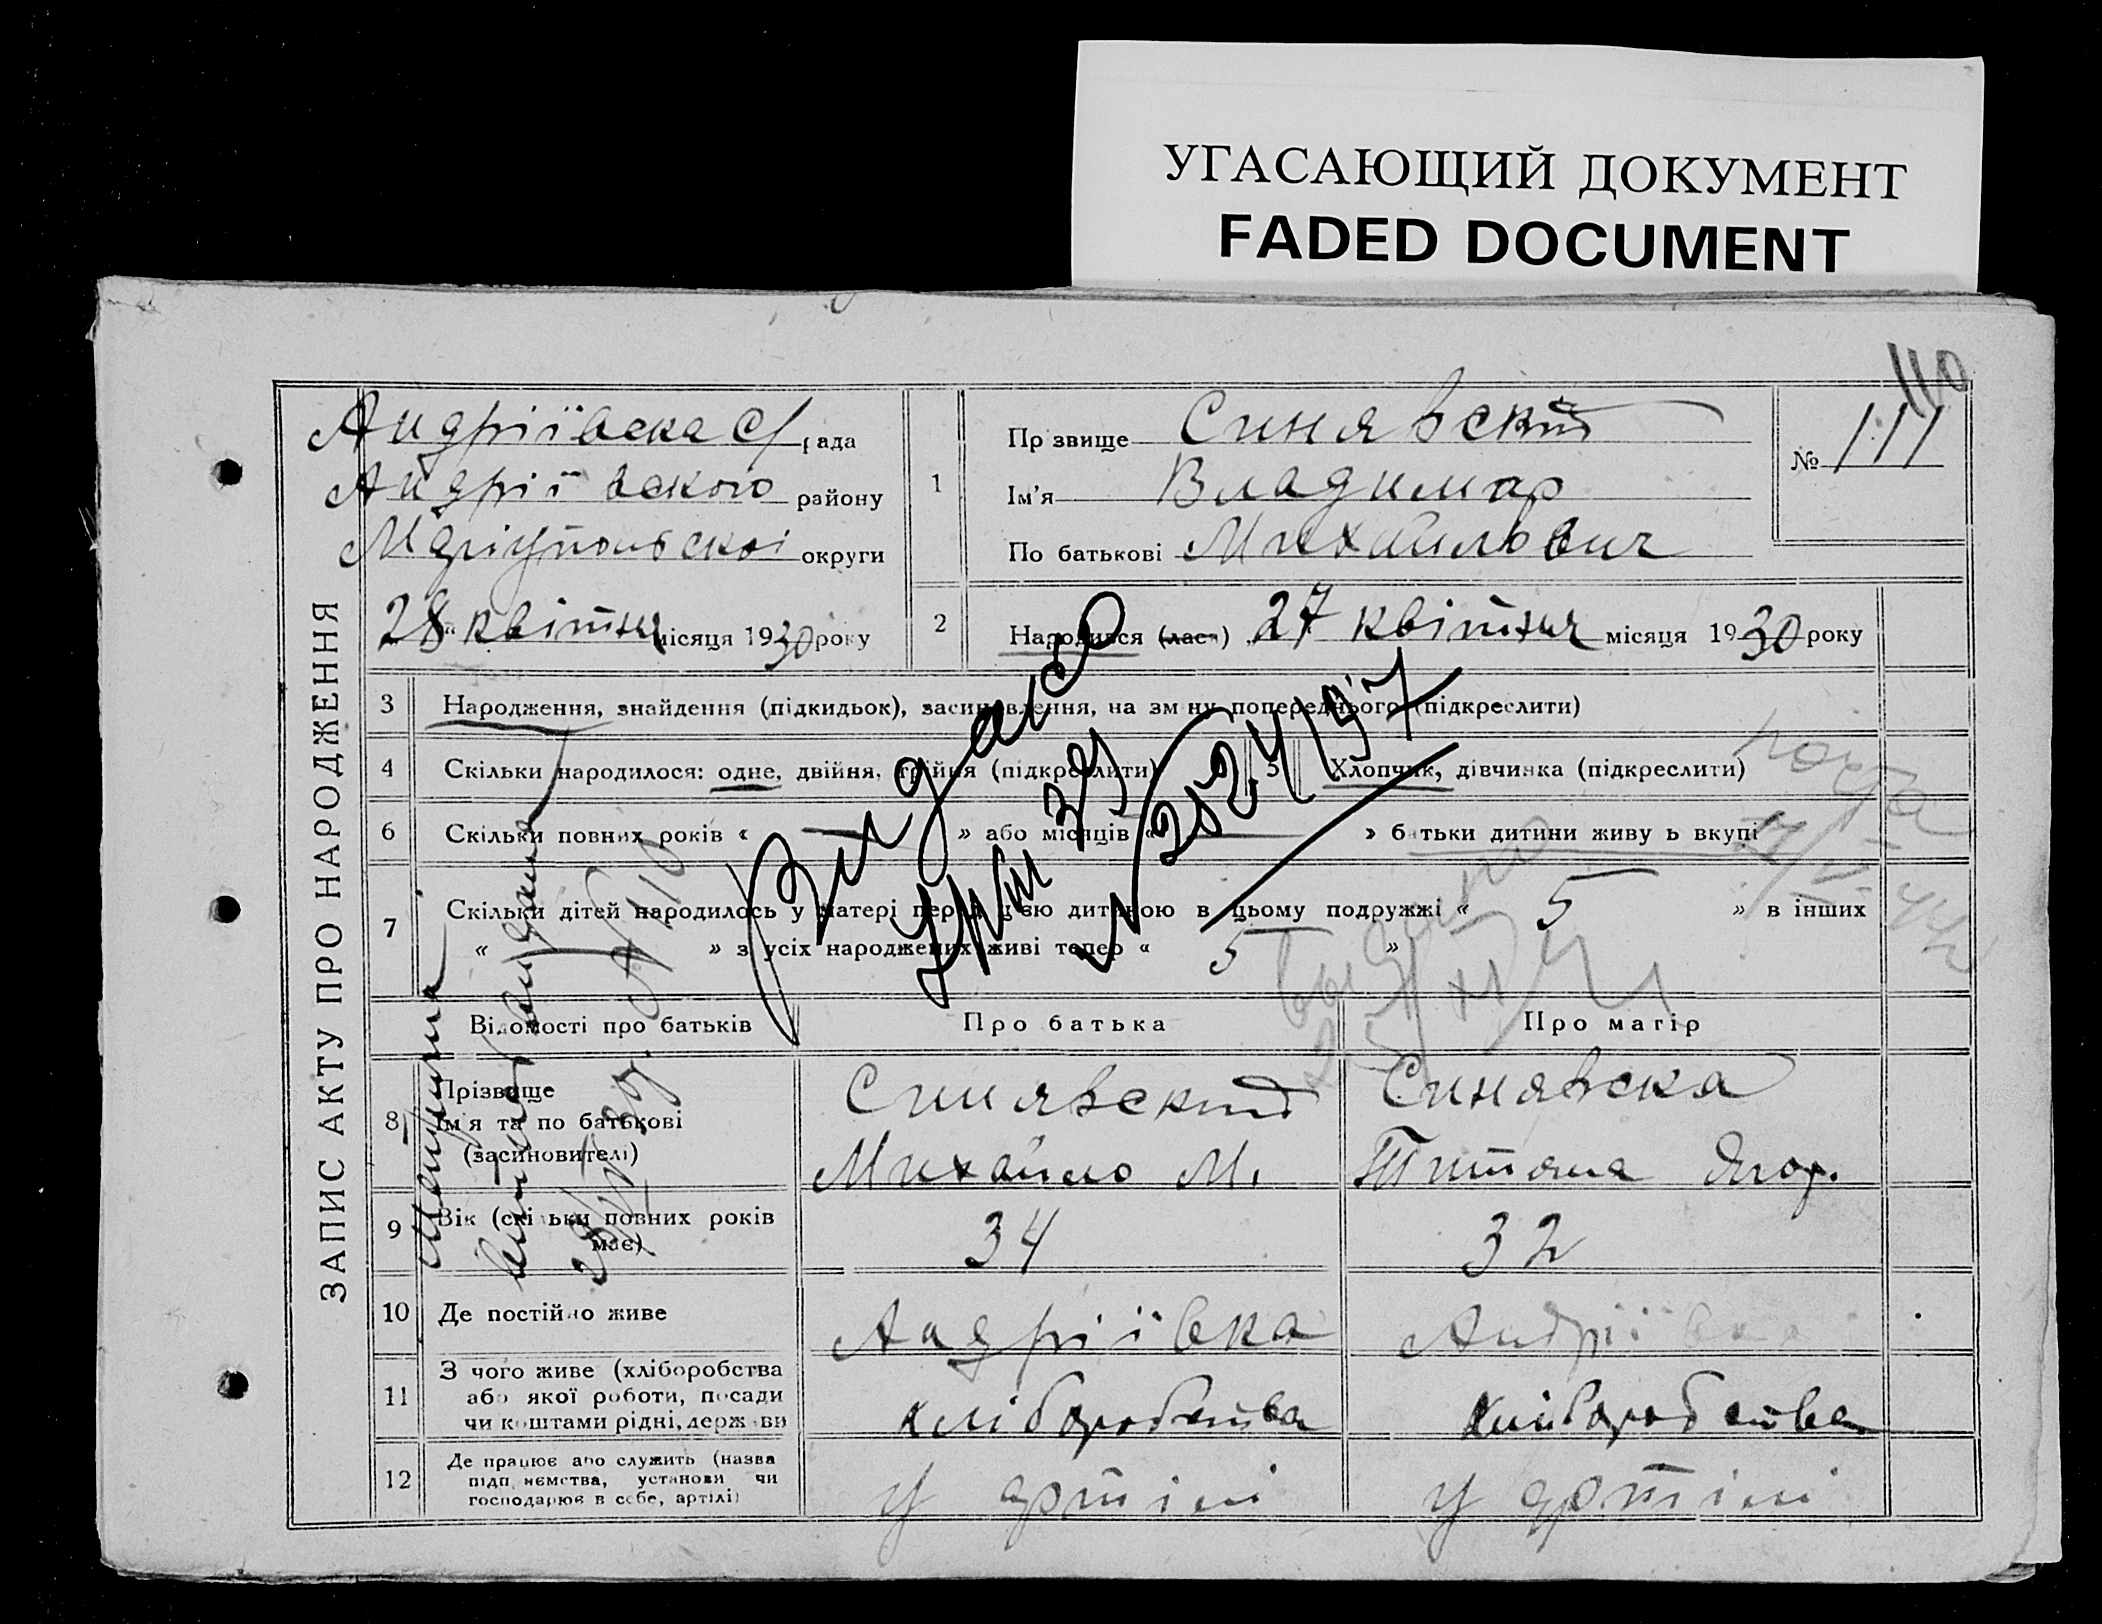 УГАСАЮЩИЙ ДОКУМЕНТ
FADED DOCUMENT
110
ЗАПИС АКТУ ПРО НАРОДЖЕННЯ
Андріївска С/рада
Андріївского району
Маріупольскої округи
28 квітня місяця 1930 року
1
Прізвище Синявский
Ім'я Владимир
По батькові Михайлович
№ 111
2 Народився (лась) 27 квітня місяця 1930 року
3 Народження, знайдення (підкидьок), засиновлення, на зміну попереднього (підкреслити)
4 Скільки народилося: одне, двійня, трійня (підкреслити) 5 Хлопчик, дівчинка (підкреслити)
6 Скільки повних років « — » або місяців « — » батьки дитини живуть вкупі
7 Скільки дітей народилось у матері перед цією дитиною в цьому подружжі « 5 » в інших
« — » з усіх народжених живі тепер « 5 »
Видано
почта
Видано
№ 110
Відомості про батьків Про батька Про матір
8 Прізвище Синявский Синявска
ім'я та по батькові
(засиновителі) Михайло М. Титяна Ягор.
9 Вік (скільки повних років має) 34 32
10 Де постійно живе Андріївка Андріївка
11 З чого живе (хліборобства
або якої роботи, посади
чи коштами рідні, держави хліборобства хліборобства
12 Де працює або служить (назва
підприємства, установи чи
господарює в себе, артілі) у артілі у артілі